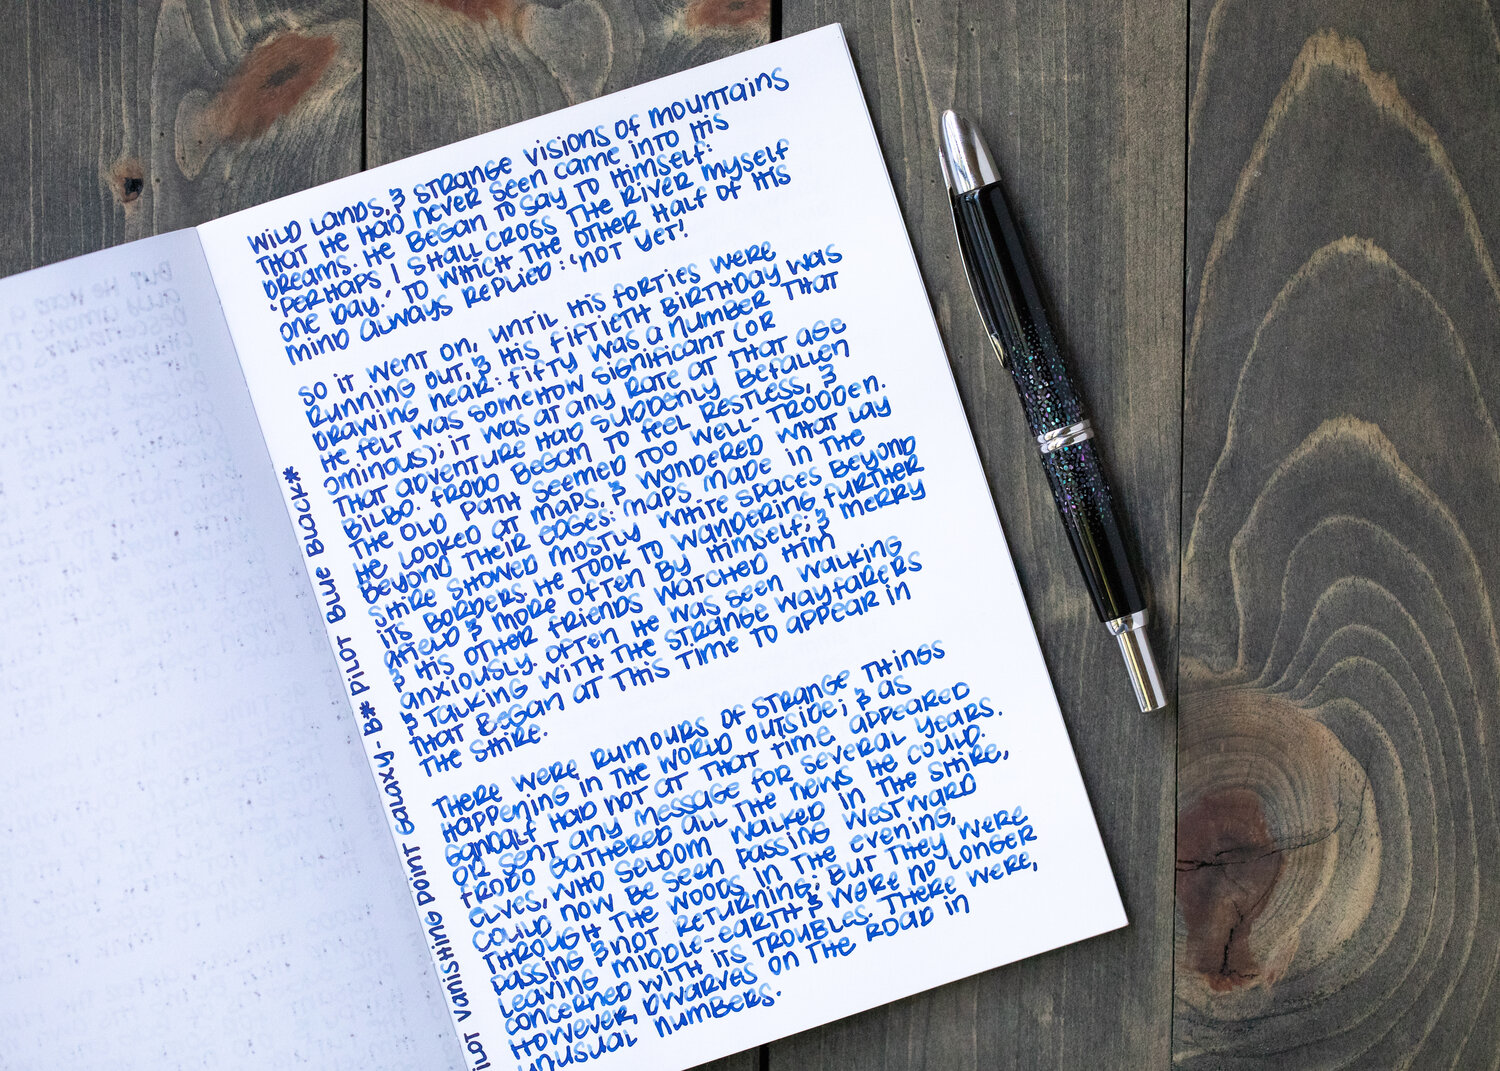 WILD LANDS, & STRANGE VISIONS OF MOUNTAINS
THAT HE HAD NEVER SEEN CAME INTO HIS
DREAMS. HE BEGAN TO SAY TO HIMSELF:
'PERHAPS I SHALL CROSS THE RIVER MYSELF
ONE DAY.' TO WHICH THE OTHER HALF OF HIS
MIND ALWAYS REPLIED: 'NOT YET.'
SO IT WENT ON, UNTIL HIS FORTIES WERE
RUNNING OUT, & HIS FIFTIETH BIRTHDAY WAS
DRAWING NEAR: FIFTY WAS A NUMBER THAT
HE FELT WAS SOMEHOW SIGNIFICANT (OR
OMINOUS); IT WAS AT ANY RATE AT THAT AGE
THAT ADVENTURE HAD SUDDENLY BEFALLEN
BILBO. FRODO BEGAN TO FEEL RESTLESS, &
THE OLD PATH SEEMED TOO WELL-TRODDEN.
HE LOOKED AT MAPS, & WONDERED WHAT LAY
BEYOND THEIR EDGES: MAPS MADE IN THE
SHIRE SHOWED MOSTLY WHITE SPACES BEYOND
ITS BORDERS. HE TOOK TO WANDERING FURTHER
AFIELD & MORE OFTEN BY HIMSELF; & MERRY
& HIS OTHER FRIENDS WATCHED HIM
ANXIOUSLY. OFTEN HE WAS SEEN WALKING
& TALKING WITH THE STRANGE WAYFARERS
THAT BEGAN AT THIS TIME TO APPEAR IN
THE SHIRE.
THERE WERE RUMOURS OF STRANGE THINGS
HAPPENING IN THE WORLD OUTSIDE; & AS
GANDALF HAD NOT AT THAT TIME APPEARED
OR SENT ANY MESSAGE FOR SEVERAL YEARS.
FRODO GATHERED ALL THE NEWS HE COULD.
ELVES, WHO SELDOM WALKED IN THE SHIRE,
COULD NOW BE SEEN PASSING WESTWARD
THROUGH THE WOODS IN THE EVENING,
PASSING & NOT RETURNING; BUT THEY WERE
LEAVING MIDDLE-EARTH & WERE NO LONGER
CONCERNED WITH ITS TROUBLES. THERE WERE,
HOWEVER, DWARVES ON THE ROAD IN
UNUSUAL NUMBERS.
ILOT VANISHING POINT GALAXY- B* PILOT BLUE BLACK*